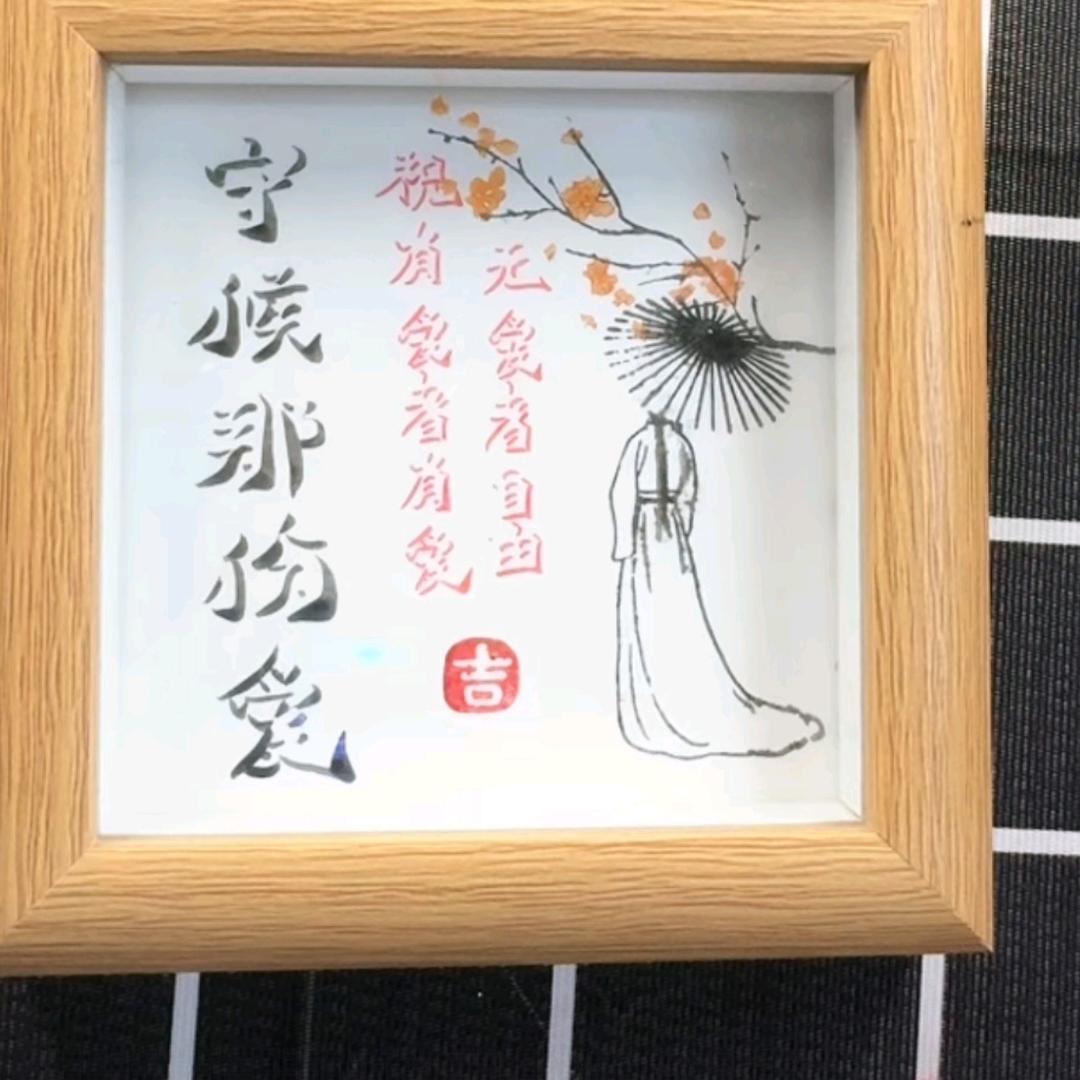 守候那份爱
祝有爱者有爱
无爱者自由
吉